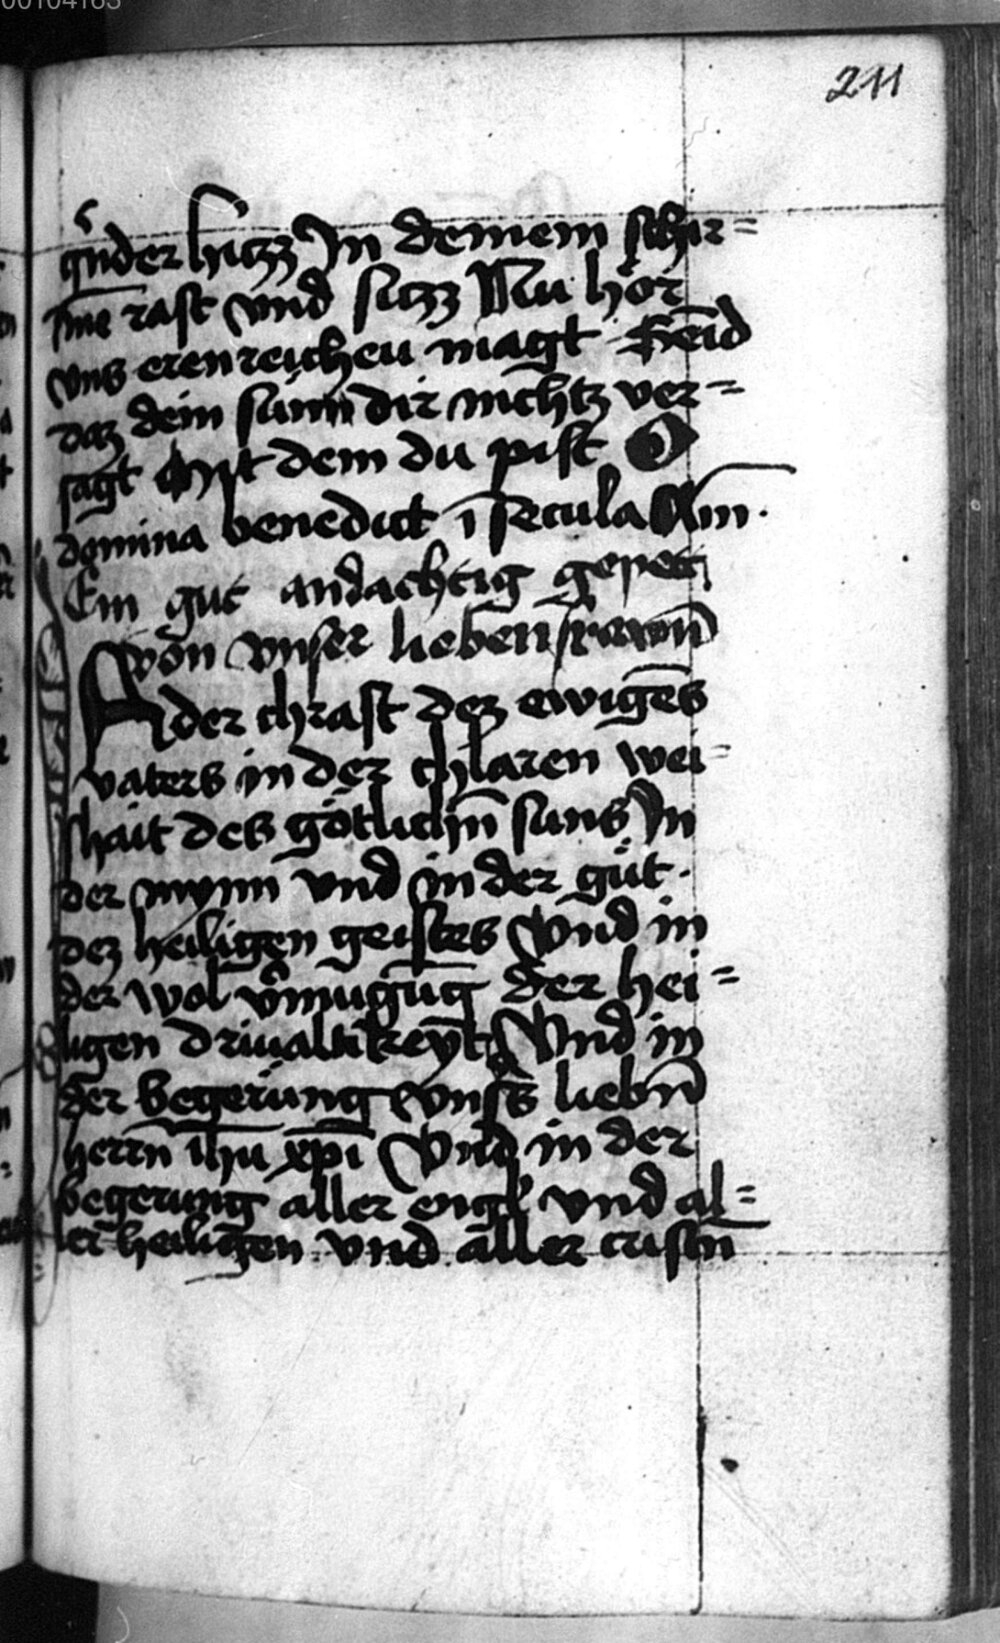 00104163
211
vnder hiczz In deinem schir=
me rast vnd siczz Nu hör
vns erenreicheu magt Seid
daz dein sunn dir nichtz ver=
sagt Mit dem du pist O
domina benedict ī secula Am̄.
Ein gut andachtig gepett
von vnser lieben frawn̄
In der chraft dez ewigēs
vaters in der chlaren wei=
shait des götlichn̄ suns In
der mynn vnd in der güt.
dez heiligen geistes Vnd in
der wol v̓mugūg der hei=
ligen driualtikeyt Vnd in
der begerüng vnss̓ liebn̄
herrn ih̄u xp̄i Vnd in der
begerung aller engl vnd al=
ler heiligen vnd aller cristn̄